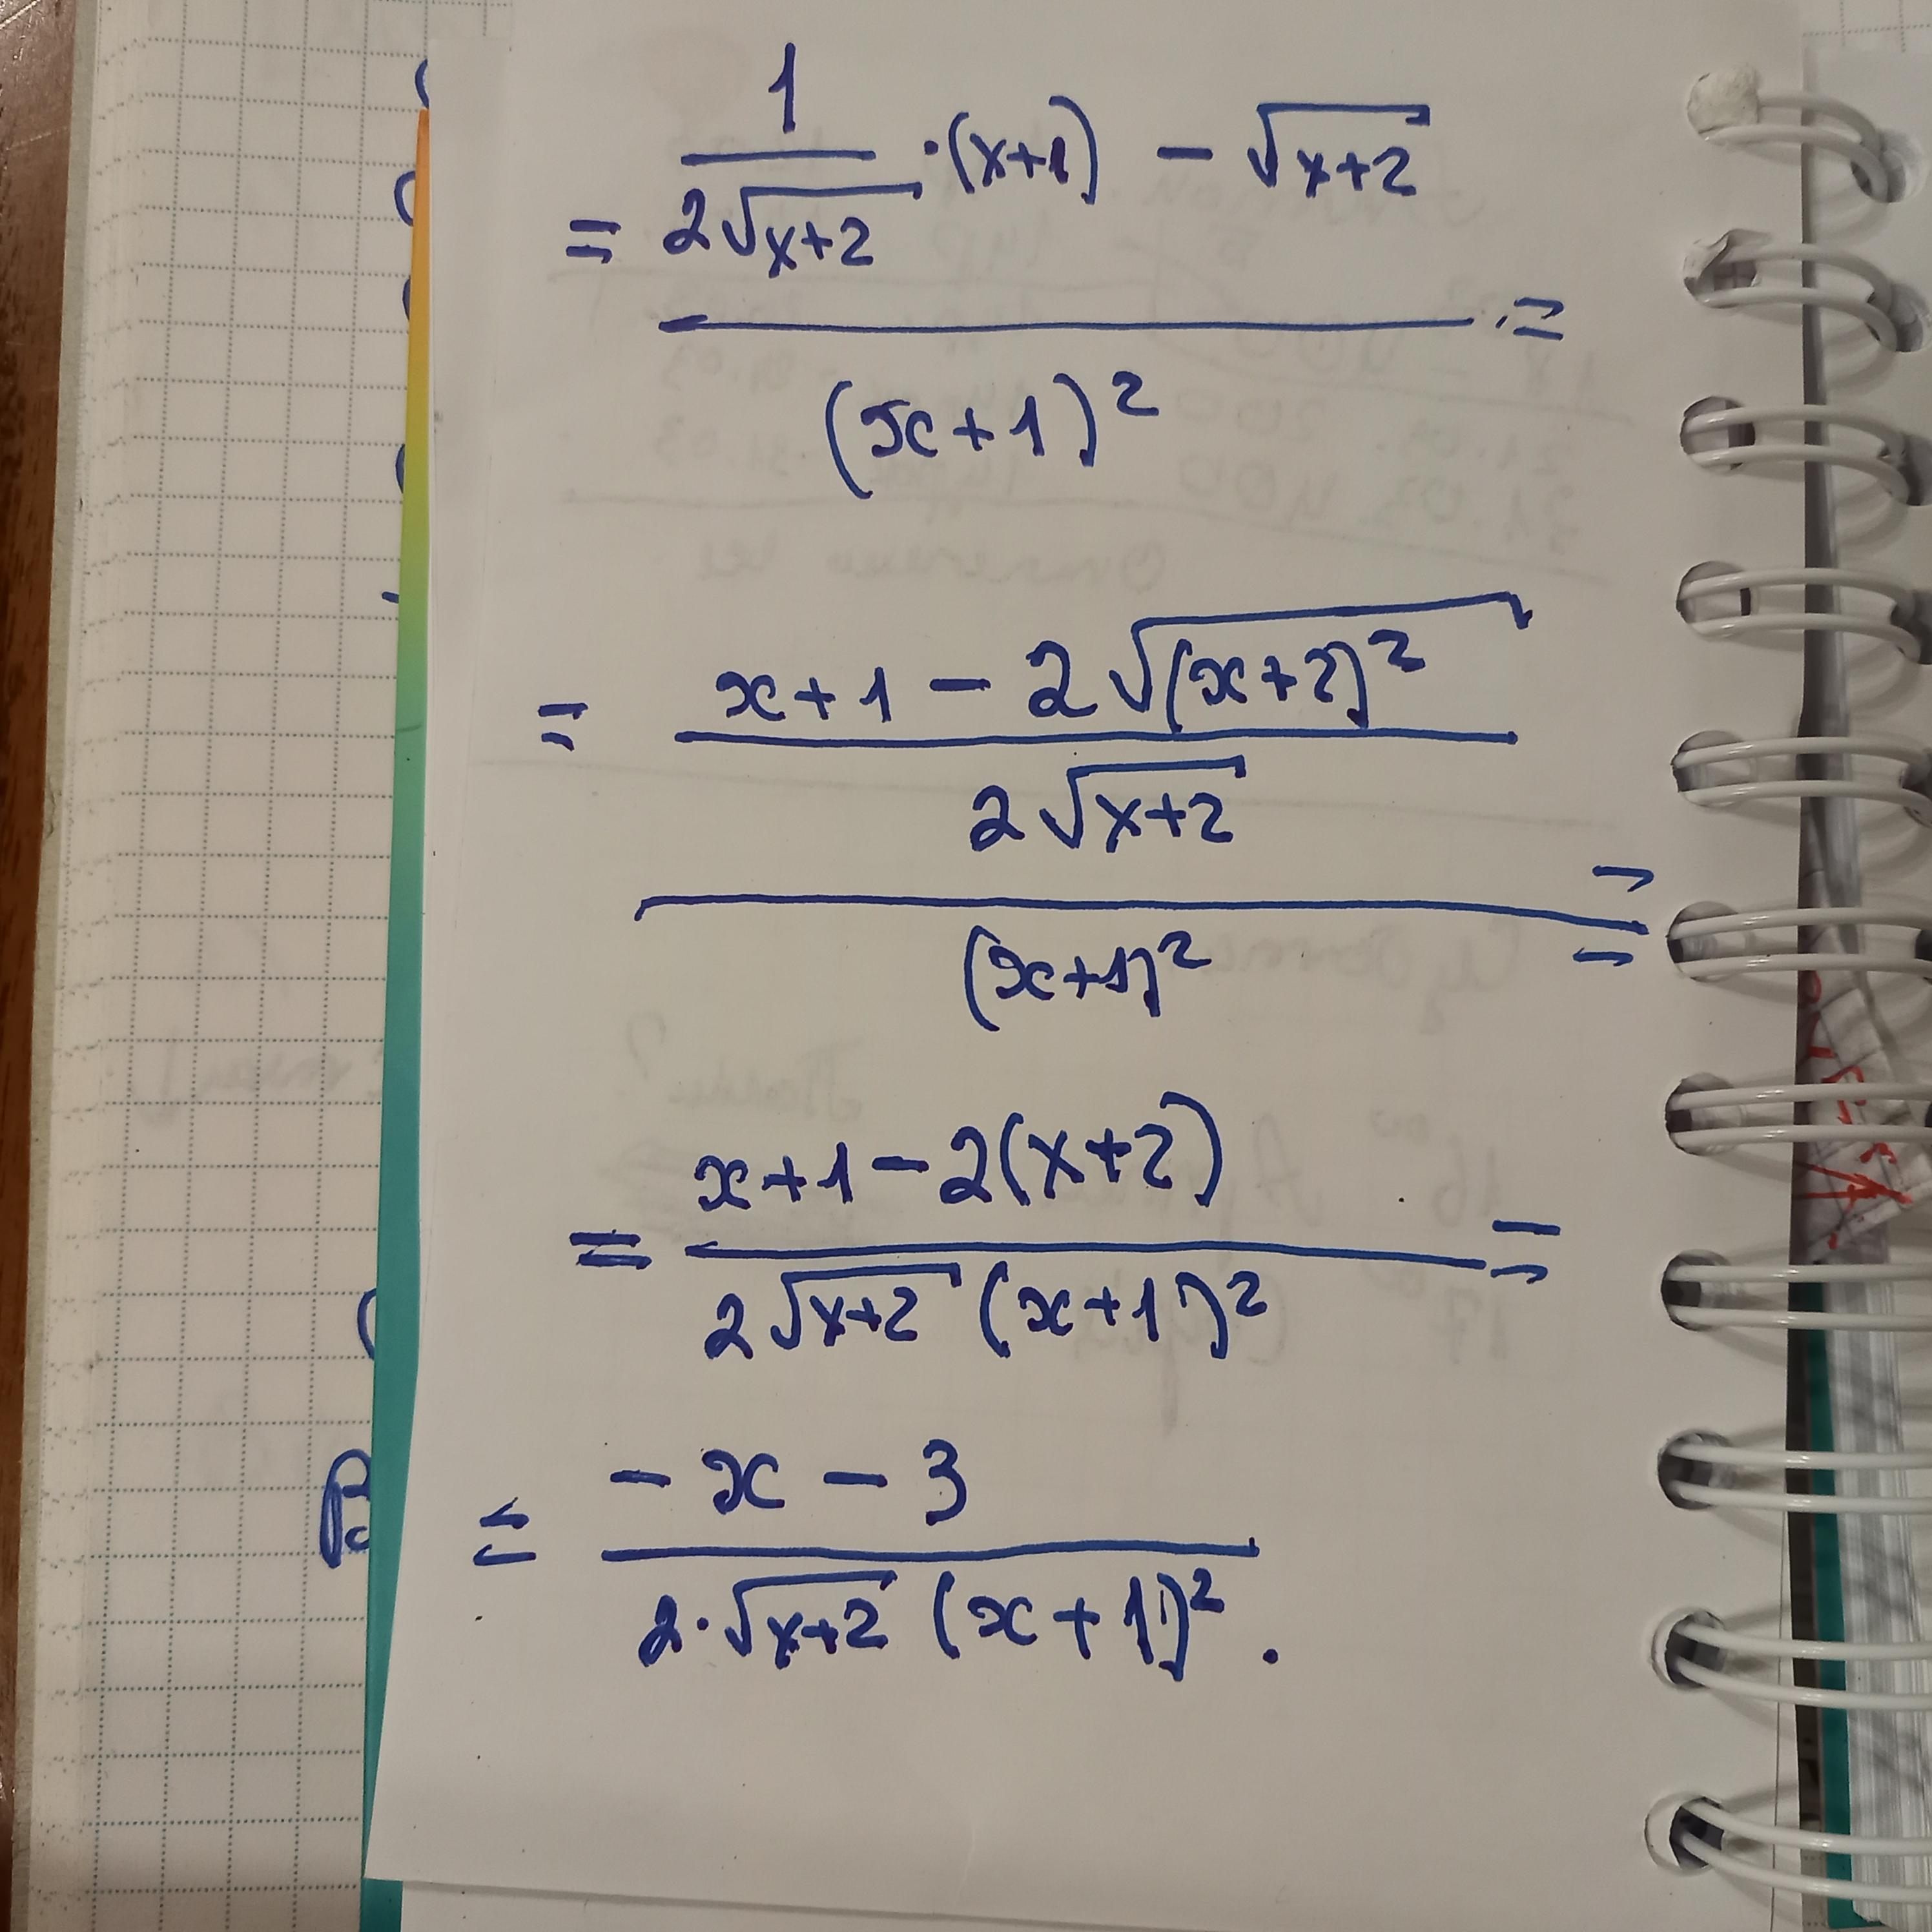 = (1/(2√(x+2)) · (x+1) − √(x+2)) / (x+1)² =
= ((x+1 − 2√((x+2)²)) / (2√(x+2))) / (x+1)² =
= (x+1 − 2(x+2)) / (2√(x+2) (x+1)²) =
= (−x − 3) / (2·√(x+2) (x+1)²).